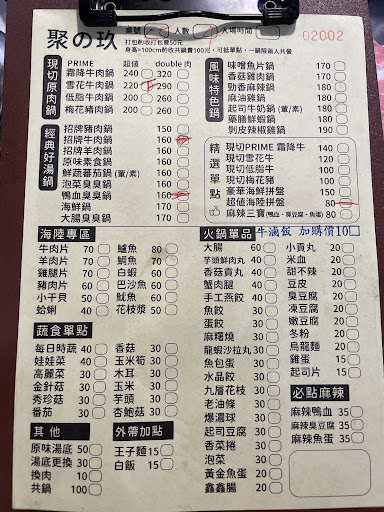 聚の玖
桌號 人數 入場時間
打包酌收打包費50元
身高=100cm酌收共鍋費100元,可抵單點,一鍋限兩人共餐
02002
現切原肉鍋
PRIME 超值 double肉
霜降牛肉鍋 240 320
雪花牛肉鍋 220 290
低脂牛肉鍋 200 260
梅花豬肉鍋 200 260
經典好湯鍋
招牌豬肉鍋 150
招牌牛肉鍋 160
招牌羊肉鍋 160
原味素食鍋 160
鮮蔬蕃茄鍋(葷/素) 160
泡菜臭臭鍋 160
鴨血臭臭鍋 160
海鮮鍋 170
大腸臭臭鍋 170
風味特色鍋
味噌魚片鍋 170
香菇雞肉鍋 170
勁香麻辣鍋 180
麻油雞鍋 180
起司牛奶鍋(葷/素) 180
藥膳鮮蝦鍋 180
剝皮辣椒雞鍋 190
精選單點
現切PRIME 霜降牛 140
現切雪花牛 120
現切低脂牛 100
現切梅花豬 100
豪華海鮮拼盤 180
超值海陸拼盤 80
麻辣三寶(鴨血、臭豆腐、魚蛋) 90
海陸專區
牛肉片 70
羊肉片 70
雞腿片 70
豬肉片 60
小干貝 50
蛤蜊 40
鱸魚 80
鯛魚 50
白蝦 60
巴沙魚 60
魷魚 60
花枝漿 50
火鍋單品
牛滷飯 加購價10
大腸 60
芋頭鮮肉丸 40
香菇貢丸 40
蟹肉腿 40
手工燕餃 40
魚餃 30
蛋餃 30
麻糬燒 30
龍蝦沙拉丸 30
魚包蛋 30
水晶餃 30
九層花枝 30
老油條 30
爆濃球 30
起司豆腐 30
香菜捲 30
泡菜 30
黃金魚蛋 20
鑫鑫腸 20
小貢丸 20
米血 20
甜不辣 20
豆皮 20
臭豆腐 20
凍豆腐 20
嫩豆腐 20
冬粉 20
烏龍麵 20
雞蛋 15
起司片 15
蔬食單點
每日時蔬 40
娃娃菜 40
高麗菜 30
金針菇 30
秀珍菇 30
番茄 30
香菇 30
玉米筍 30
木耳 30
玉米 30
芋頭 30
杏鮑菇 30
必點麻辣
麻辣鴨血 35
麻辣臭豆腐 35
麻辣魚蛋 35
其他
原味湯底 50
湯底更換 30
換肉 10
共鍋 100
外帶加點
王子麵 15
白飯 15